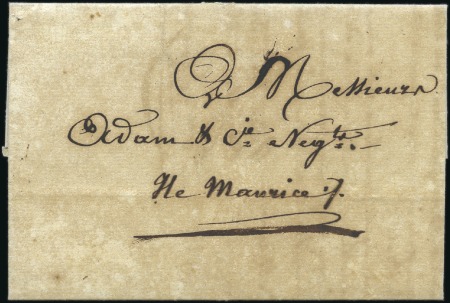 A Messieurs
Adam & Cie. Negts.
Ile Maurice ./.